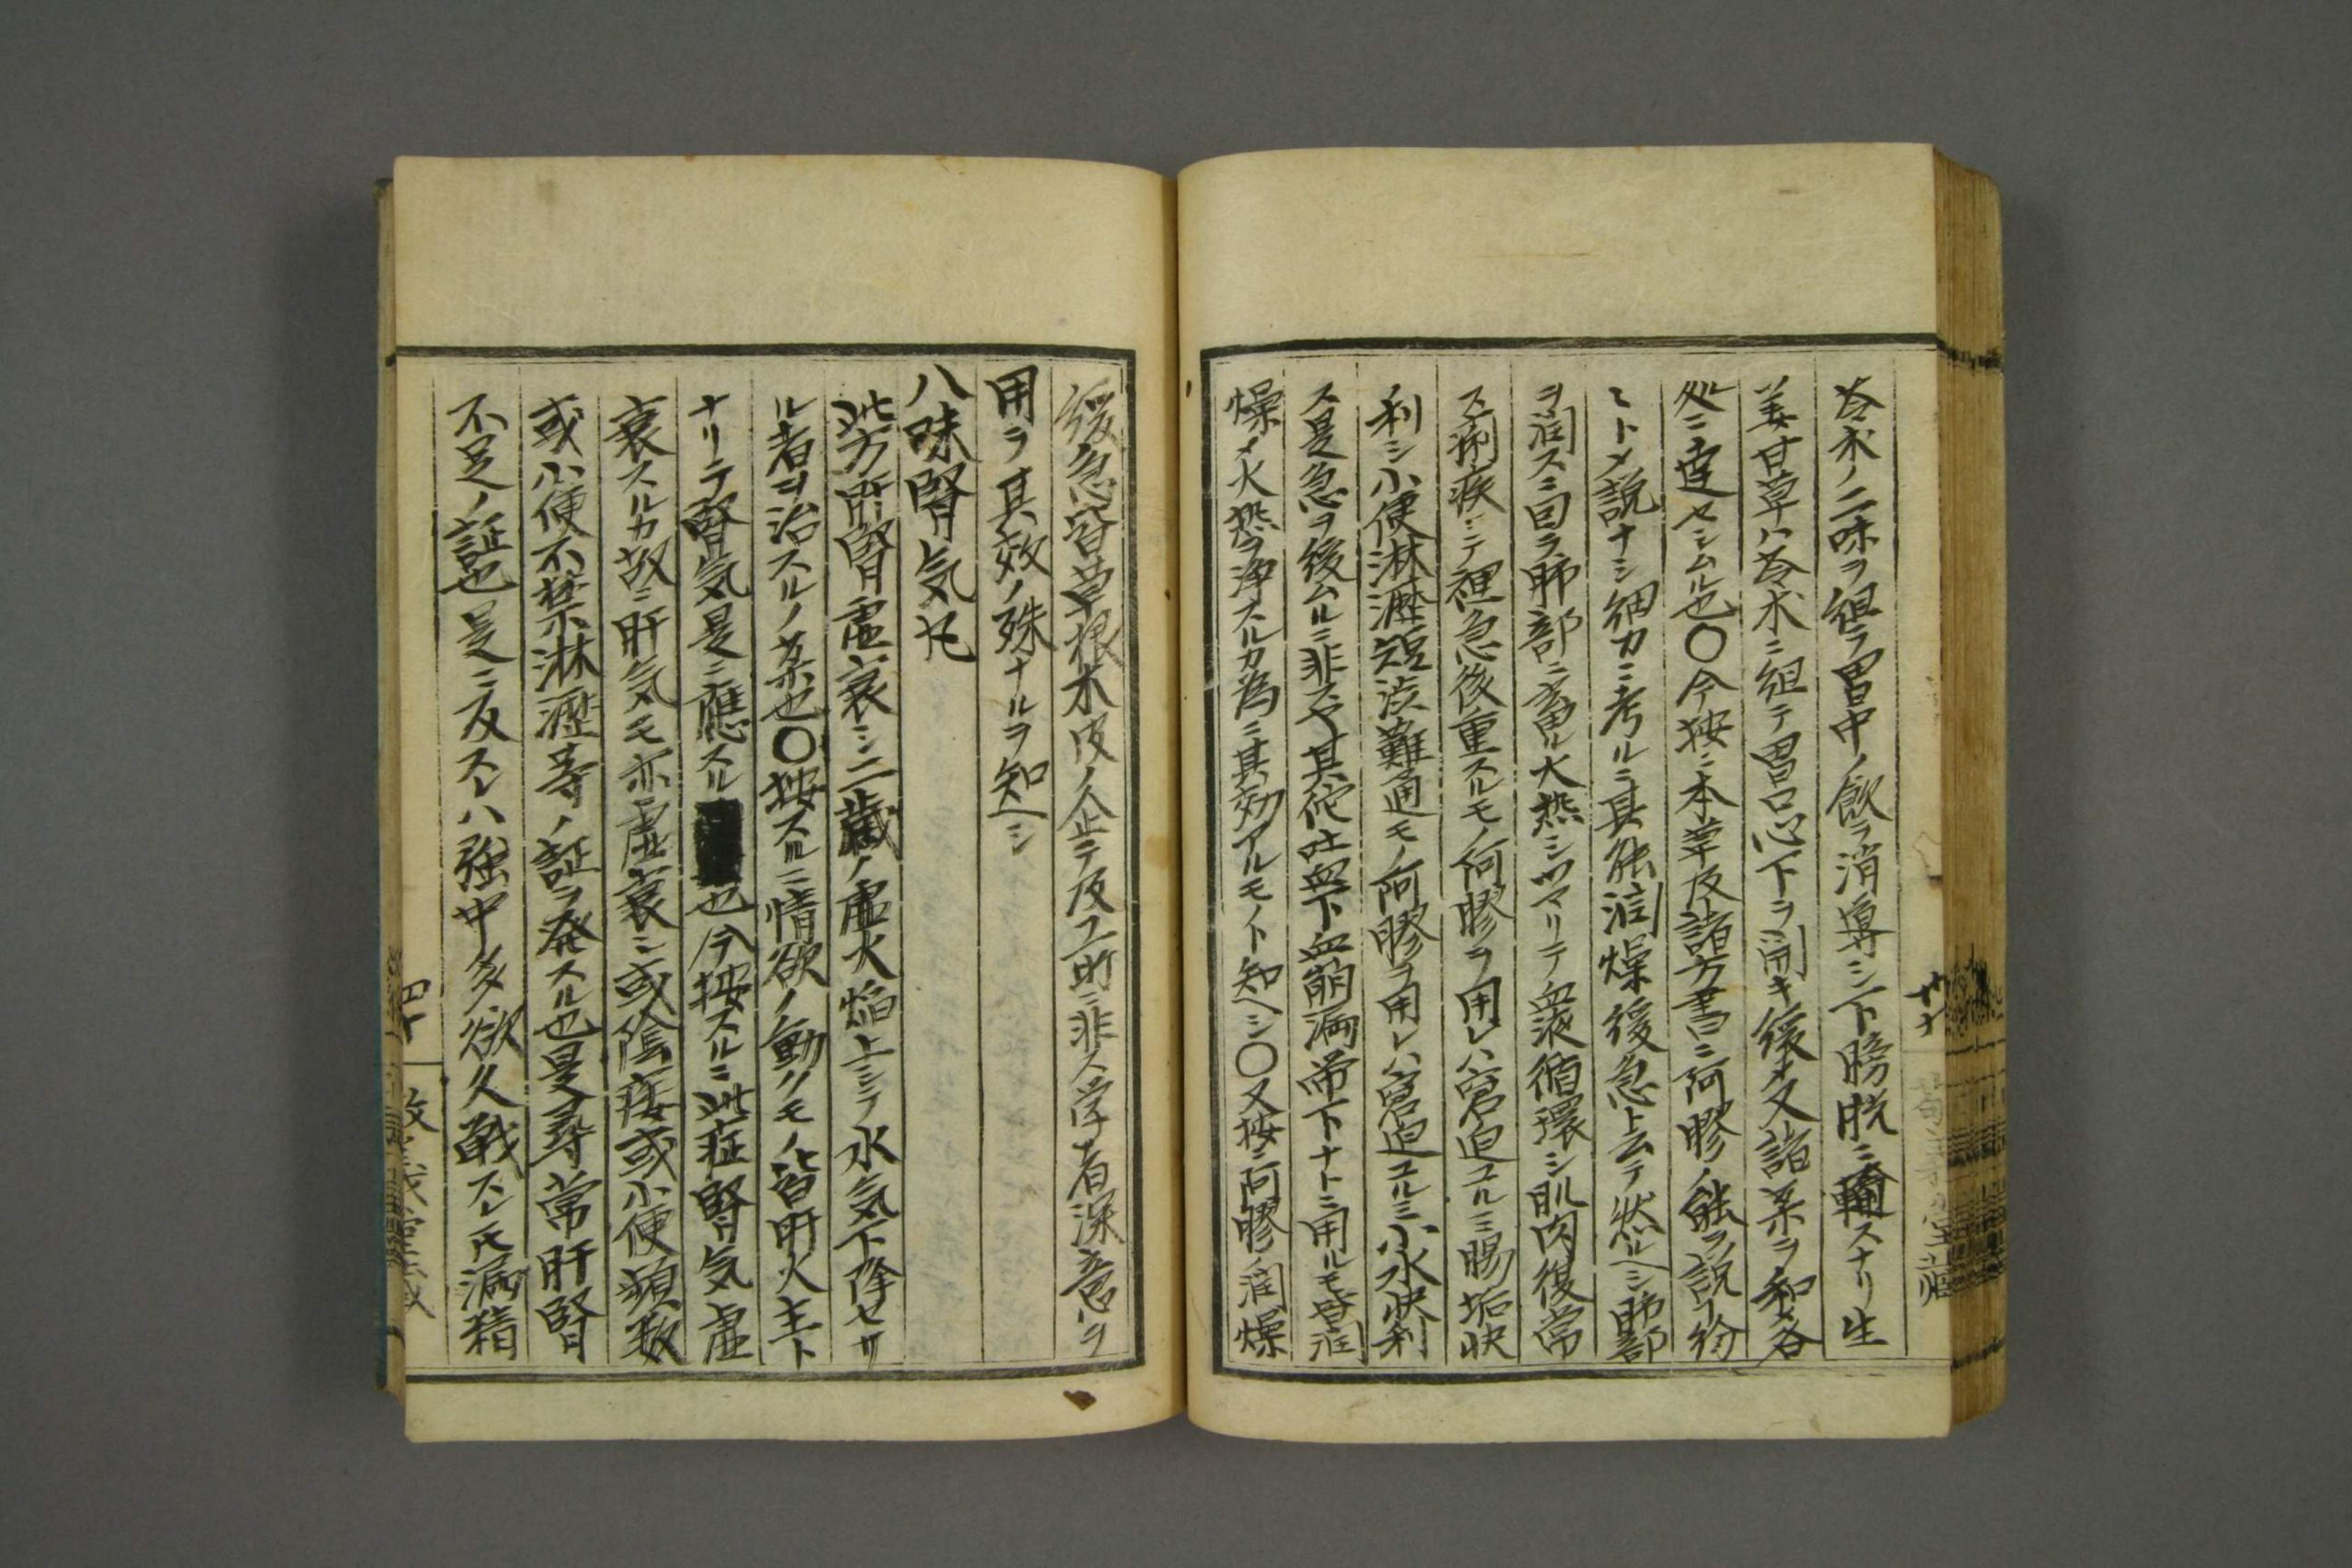 苓朮ノ二味ヲ組テ胃中ノ飲ヲ消導シ下膀胱ニ輸スナリ生
姜甘草ハ苓朮ニ組テ胃口心下ヲ開キ緩メ又諸薬ヲ和メ各
処ニ達セシムル也〇今按ニ本草及諸方書ニ阿膠ノ能ヲ説ク紛
ミトメ説ナシ細カニ考ルニ其能潤燥緩急ト云テ状ルヘシ肺部
ヲ潤スニ因ラ肺部ニ畜ル大熱シツマリテ血液循環シ肌肉復常
ス痢疾ニテ裡急後重スルモノ阿膠ヲ用レハ窘迫ユルミ腸垢快
利シ小便淋瀝短渋難通モノ阿膠ヲ用レハ窘迫ユルミ小水快利
ス是急ヲ緩ムルニ非スヤ其佗吐血下血崩漏帯下ナトニ用ルモ皆潤
燥メ火熱ヲ浄スルカ為ニ其効アルモノト知ヘシ〇又按ニ阿膠ノ潤燥
緩急皆草根木皮ノ企テ及フ所ニ非ス学者深意ヲ
用ラ其效ノ殊ナルヲ知ヘシ
八味腎気丸
此方肝腎虚衰シ二蔵ノ虚火焔上シテ水気下降セサ
ル者ヲ治スルノ薬也〇按スルニ情欲ノ動クモノ皆肝火主ト
ナリテ腎気是ニ應スル也今按スルニ此症腎気虚
衰スルカ故ニ肝気モ亦虚衰シ或陰痿或小便頻数
或小便不禁淋瀝等ノ証ヲ発スル也是尋常肝腎
不足ノ証也是ニ反スレハ強中多欲久戦スレ𪜈漏精
四十